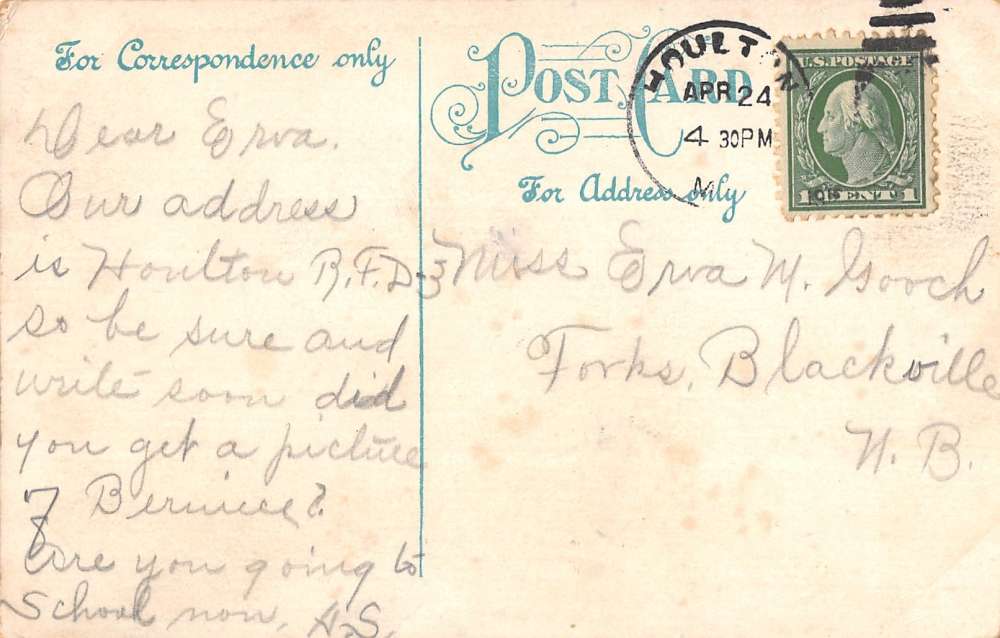 For Correspondence only
Dear Erva.
Our address
is Houlton R.F.D-3
so be sure and
write soon did
you get a picture
of Bernice?
Are you going to
School now, H.S.
POST CARD
For Address only
HOULTON
APR 24
4 30PM
M
U.S. POSTAGE
1 ONE CENT 1
Miss Erva M. Gooch
Forks, Blackville
N. B.